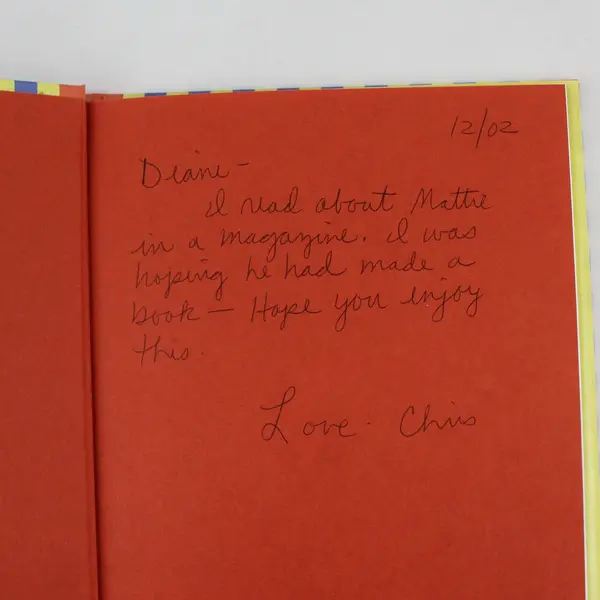 12/02
Diane -
I read about Mattie
in a magazine. I was
hoping he had made a
book — Hope you enjoy
this.
Love - Chris